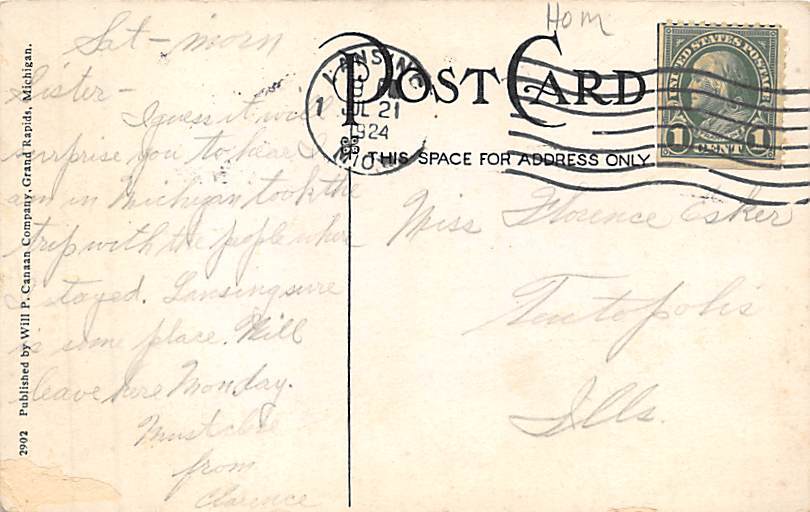 Hom
POST CARD
THIS SPACE FOR ADDRESS ONLY
LANSING
1
JUL 21
1924
MICH
UNITED STATES POSTAGE
1 CENT 1
Sat - morn
Sister -
I guess it will
surprise you to hear I
am in Michigan took the
trip with the people where
I stayed. Lansing sure
is some place. Will
leave here Monday.
Must close
from
Clarence
Miss Florence Esker
Teutopolis
Ills.
2902 Published by Will P. Canaan Company, Grand Rapids, Michigan.